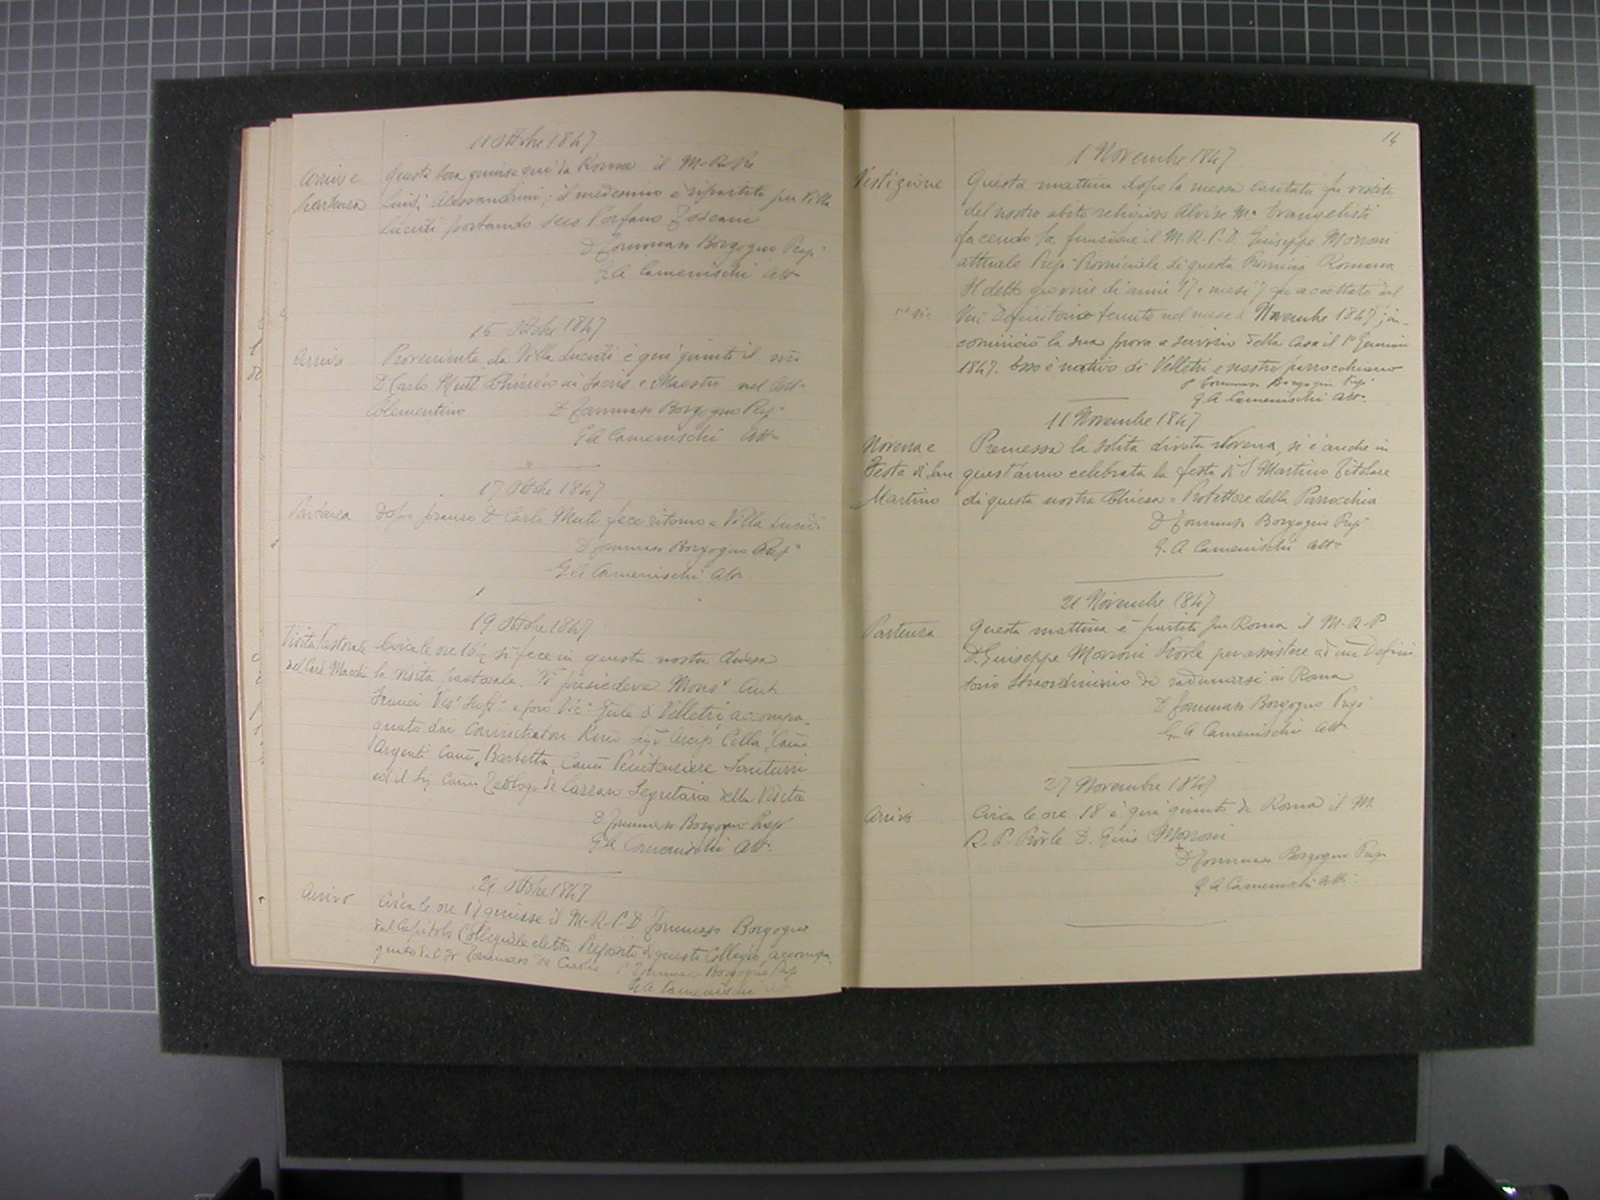 11 Ottobre 1847
Arrivo e Questa sera giunse qui da Roma il M. R. P.
partenza Luigi Alessandrini; il medesimo è ripartito per Villa
Lucidi portando seco l'orfano Toscani
D. Tommaso Borgogno Prep.
G. A. Camenischi Att.
15 Ottobre 1847
Arrivo Proveniente da Villa Lucidi è qui giunto il
D. Carlo Muti Chierico in sacris e Maestro nel
Clementino D. Tommaso Borgogno Prep.
G. A. Camenischi Att.
17 Ottobre 1847
Partenza Dopo pranzo D. Carlo Muti fece ritorno a Villa Lucidi
D. Tommaso Borgogno Prep.
G. A. Camenischi Att.
19 Ottobre 1847
Visita Pastorale Circa le ore 16 ½ si fece in questa nostra chiesa
del Card. Macchi la visita pastorale. Vi presiedeva Mons.r Ant.
Franci Vesc. Suff. e suo Vic. Gnle di Velletri, accompa-
gnato dai Convisitatori Rmi Sigri Arcip. Cella, Can.
Argenti Can. Barbetta, Can. Penitenziere Santurri
ed il Sig. Can. Teologo Segretario della Visita
D. Tommaso Borgogno Prep.
G. A. Camenischi Att.
29 Ottobre 1847
Arrivo Circa le ore 17 giunse il M. R. P. D. Tommaso Borgogno
dal Capitolo Collegiale eletto Preposito di questo Collegio, accompa-
gnato dal Fr. Tommaso De Carolis D. Tommaso Borgogno Prep.
G. A. Camenischi Att.
14
1 Novembre 1847
Vestizione Questa mattina dopo la messa cantata fu vestito
del nostro abito religioso Alvise Ma. Evangelisti
facendo la funzione il M. R. P. D. Giuseppe Morroni
attuale Prep. Provinciale di questa Provincia Romana
Il detto giovine di anni 17 e mesi 7 fu accettato dal
Ven. Definitorio tenuto nel mese di Novembre 1847; in-
cominciò la sua prova a servizio della Casa il 1° Gennaio
1847. Esso è nativo di Velletri e nostro parrocchiano
D. Tommaso Borgogno Prep.
G. A. Camenischi Att.
11 Novembre 1847
Novena e Premessa la solita divota Novena, si è anche in
Festa di San quest'anno celebrata la festa di S. Martino Titolare
Martino di questa nostra Chiesa e Protettore della Parrocchia
D. Tommaso Borgogno Prep.
G. A. Camenischi Att.
21 Novembre 1847
Partenza Questa mattina è partito per Roma il M. R. P.
D. Giuseppe Morroni Prov.le per assistere ad un Defini-
torio Straordinario da radunarsi in Roma
D. Tommaso Borgogno Prep.
G. A. Camenischi Att.
27 Novembre 1847
Arrivo Circa le ore 18 è qui giunto da Roma il M.
R. P. Prov.le D. Gius. Morroni
D. Tommaso Borgogno Prep.
G. A. Camenischi Att.